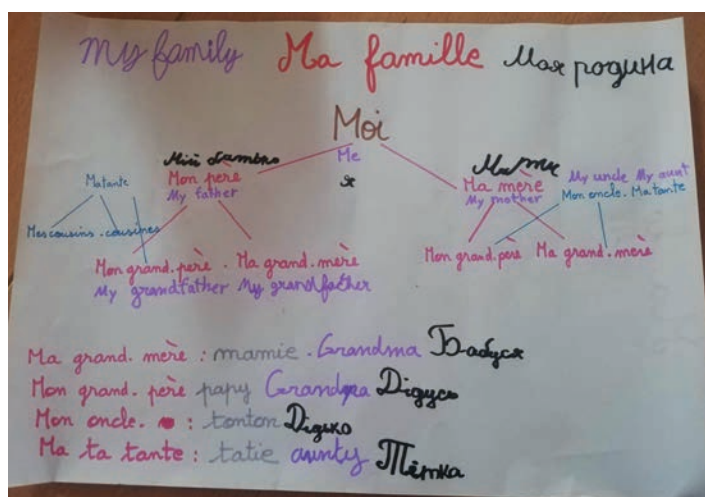 My family Ma famille Моя родина
Moi
Мій батько Me
Mon père
My father
я
Ma mère
My mother
My uncle My aunt
Mon oncle. Ma tante
Ma tante
Mes cousins. cousines
Mon grand. père. Ma grand. mère
My grandfather My grandfather
Mon grand. père Ma grand. mère
Ma grand. mère : mamie. Grandma Бабуся
Mon grand. père papy Grandpa Дідусь
Mon oncle. : tonton Дядько
Ma ta tante : tatie aunty Тітка